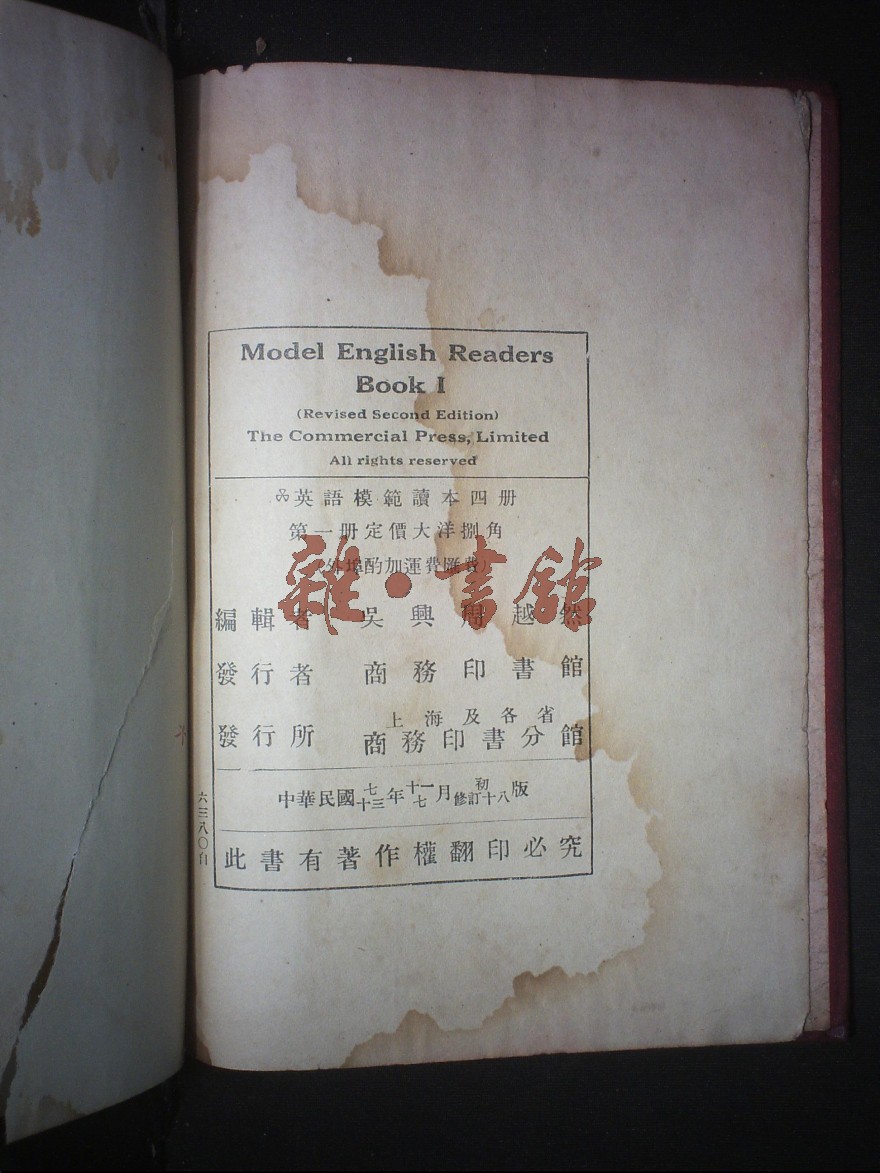 Model English Readers
Book I
(Revised Second Edition)
The Commercial Press, Limited
All rights reserved
英語模範讀本四册
第一册定價大洋捌角
（外埠酌加運費匯費）
雜·書館
編輯者 吳興周越然
發行者 商務印書館
發行所 上海及各省
商務印書分館
中華民國七年十一月初版
十三年七月修訂十八版
此書有著作權翻印必究
六三八〇自